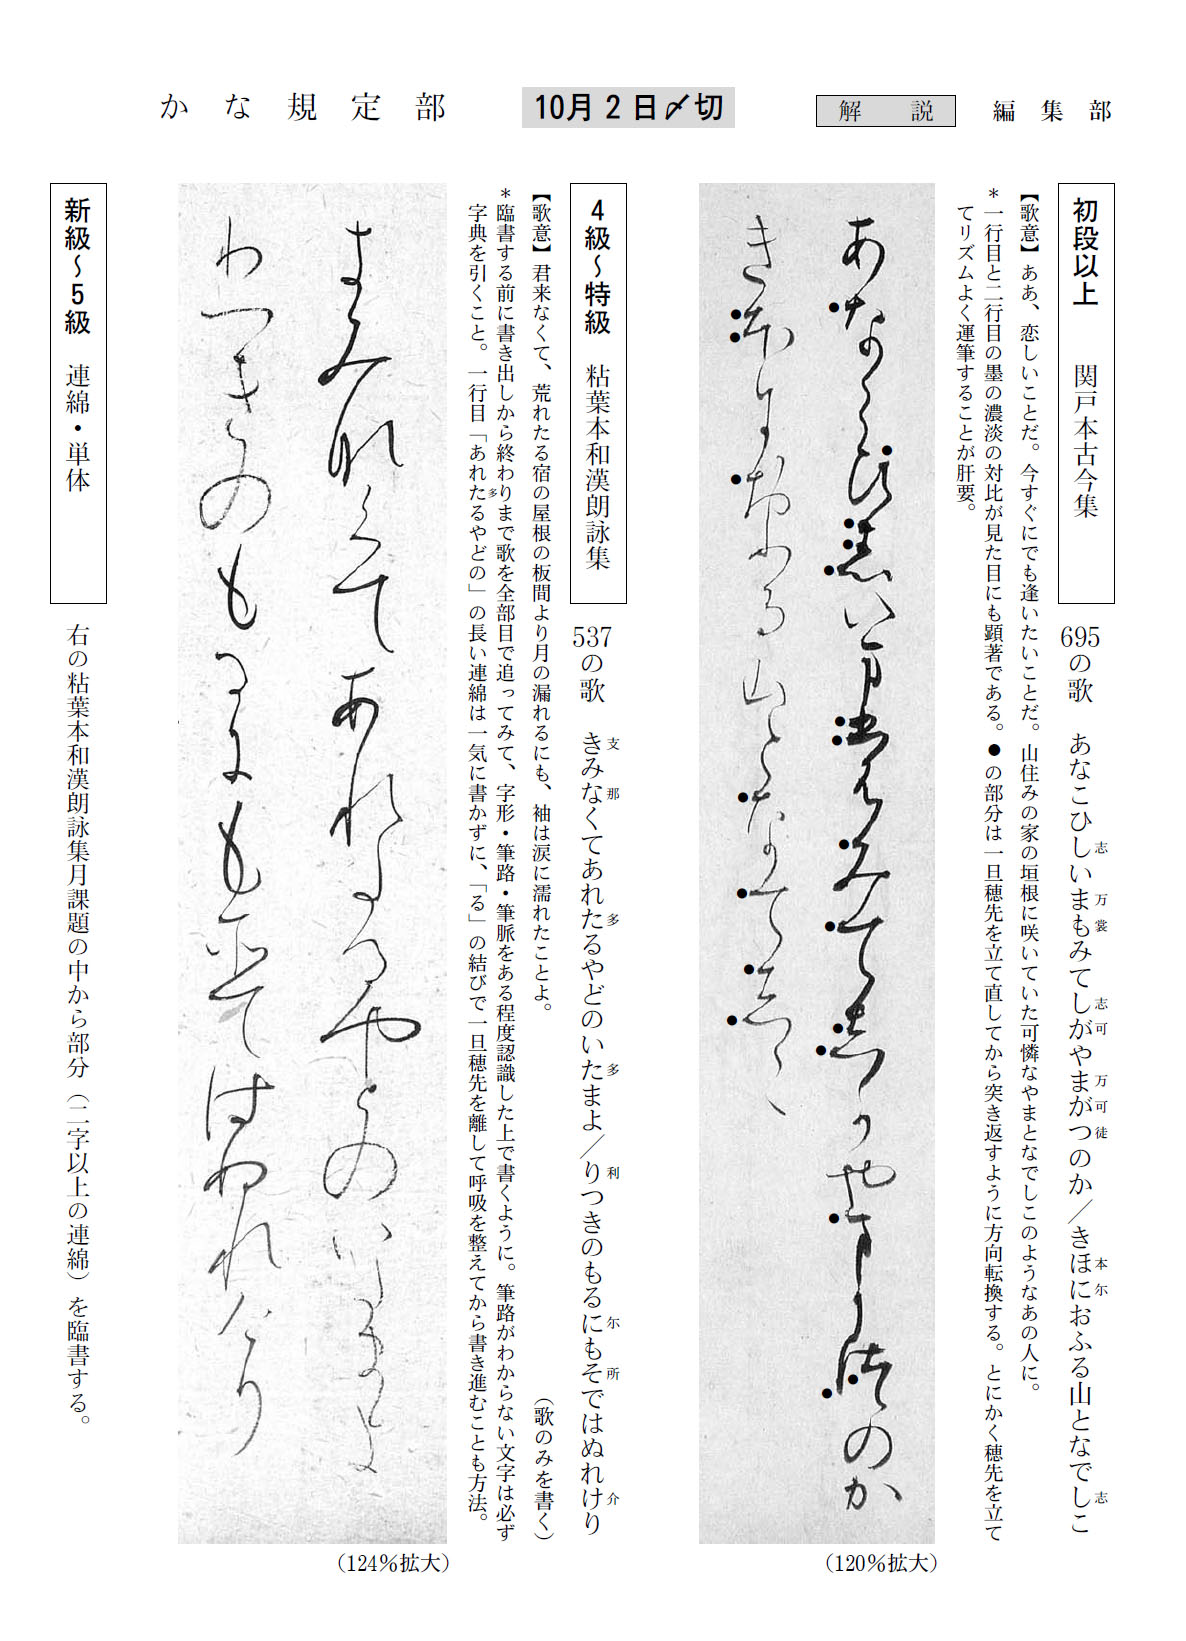 かな規定部
10月2日〆切
解説
編集部
初段以上　関戸本古今集
695の歌　あなこひしいまもみてしがやまがつのか／きほにおふる山となでしこ
志
万
裳
志
可
万
可
徒
本
尓
志
【歌意】ああ、恋しいことだ。今すぐにでも逢いたいことだ。山住みの家の垣根に咲いていた可憐なやまとなでしこのようなあの人に。
＊一行目と二行目の墨の濃淡の対比が見た目にも顕著である。●の部分は一旦穂先を立て直してから突き返すように方向転換する。とにかく穂先を立て
てリズムよく運筆することが肝要。
あなこひしいまもみてしかやまかつのか
きほにおふる山となてしこ
（120％拡大）
4級～特級　粘葉本和漢朗詠集
537の歌　きみなくてあれたるやどのいたまよ／りつきのもるにもそではぬれけり
支
那
多
多
利
尓
所
介
（歌のみを書く）
【歌意】君来なくて、荒れたる宿の屋根の板間より月の漏れるにも、袖は涙に濡れたことよ。
＊臨書する前に書き出しから終わりまで歌を全部目で追ってみて、字形・筆路・筆脈をある程度認識した上で書くように。筆路がわからない文字は必ず
字典を引くこと。一行目「あれたるやどの」の長い連綿は一気に書かずに、「る」の結びで一旦穂先を離して呼吸を整えてから書き進むことも方法。
多
きみなくてあれたるやとのいたまよ
りつきのもるにもそてはぬれけり
（124％拡大）
新級～5級　連綿・単体
右の粘葉本和漢朗詠集月課題の中から部分（二字以上の連綿）を臨書する。